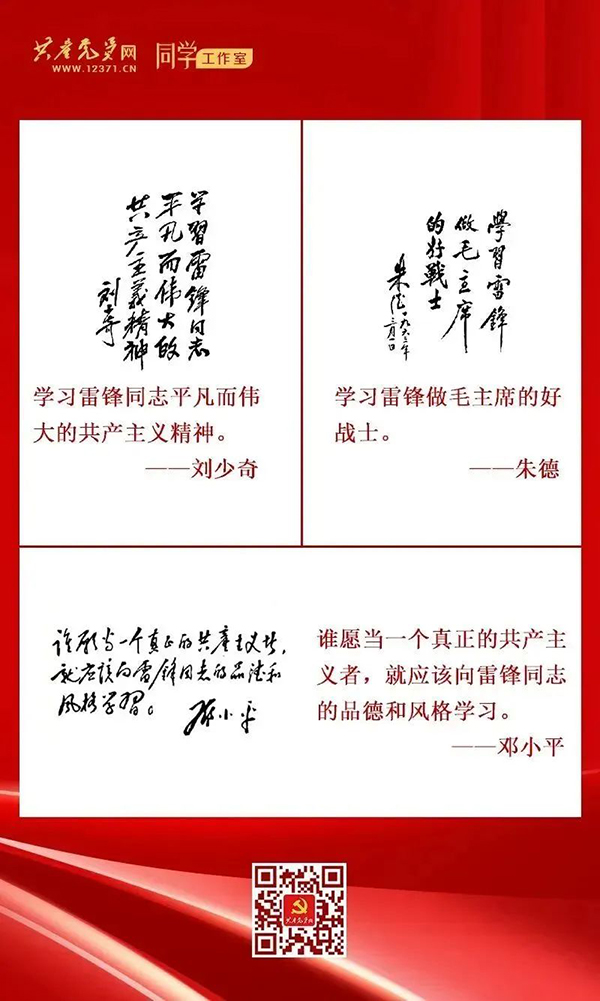 共产党员网
WWW.12371.CN
同学工作室
学習雷锋同志
平凡而伟大的
共产主義精神
刘少奇
学习雷锋同志平凡而伟
大的共产主义精神。
——刘少奇
學習雷锋
做毛主席
的好戰士
朱德
一九六三年
学习雷锋做毛主席的好
战士。
——朱德
谁愿当一个真正的共產主义者,
就应该向雷锋同志的品德和
风格学習。
邓小平
谁愿当一个真正的共产主
义者，就应该向雷锋同志
的品德和风格学习。
——邓小平
共产党员网